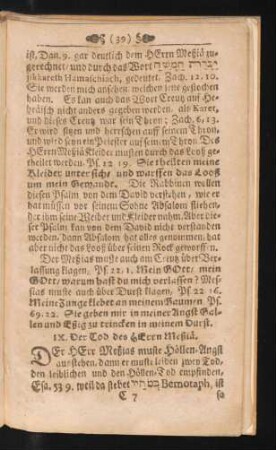 (39)
ist, Dan. 9. gar deutlich dem HErrn Meßiä zu-
gerechnet, und durch das Wort
jikkareth Hamaschiach, gedeutet. Zach. 12. 10.
Sie werden mich ansehen, welchen jene gestochen
haben. Es kan auch das Wort Creutz auf He-
bräisch nicht anders gegeben werden, als Karet,
und dieses Creutz war sein Thron: Zach. 6, 13.
Er wird sitzen und herrschen auff seinem Thron,
und wird seyn ein Priester auf seinem Thron. Des
HErrn Meßiä Kleider musten durch das Looß ge-
theilet werden. Ps. 12 19. Sie theilten meine
Kleider unter sich, und warffen das Looß
um mein Gewand. Die Rabbinen wollen
diesen Psalm von dem David verstehen, wie er
hat müssen vor seinem Sohne Absalom fliehen,
der ihm seine Weiber und Kleider nahm. Aber die-
ser Psalm kan von dem David nicht verstanden
werden. Dann Absalom hat alles genommen, hat
aber nicht das Looß über seinen Rock geworffen.
Der Meßias muste auch am Creutz über Ver-
lassung klagen, Ps. 22, 1. Mein GOtt, mein
GOtt, warum hast du mich verlassen? Mes-
sias muste auch über Durst klagen, Ps 22 16.
Meine Zunge klebet an meinem Gaumen. Ps.
69. 22. Sie geben mir in meiner Angst Gal-
len und Eßig zu trincken in meinem Durst.
IX. Der Tod des HErrn Meßiä.
DEr HErr Meßias muste Höllen-Angst
ausstehen, dann er muste leiden zwey Tod,
den leiblichen und den Höllen-Tod empfinden,
Esa. 53 9. weil da stehet Bemotaph, ist
C 7 so